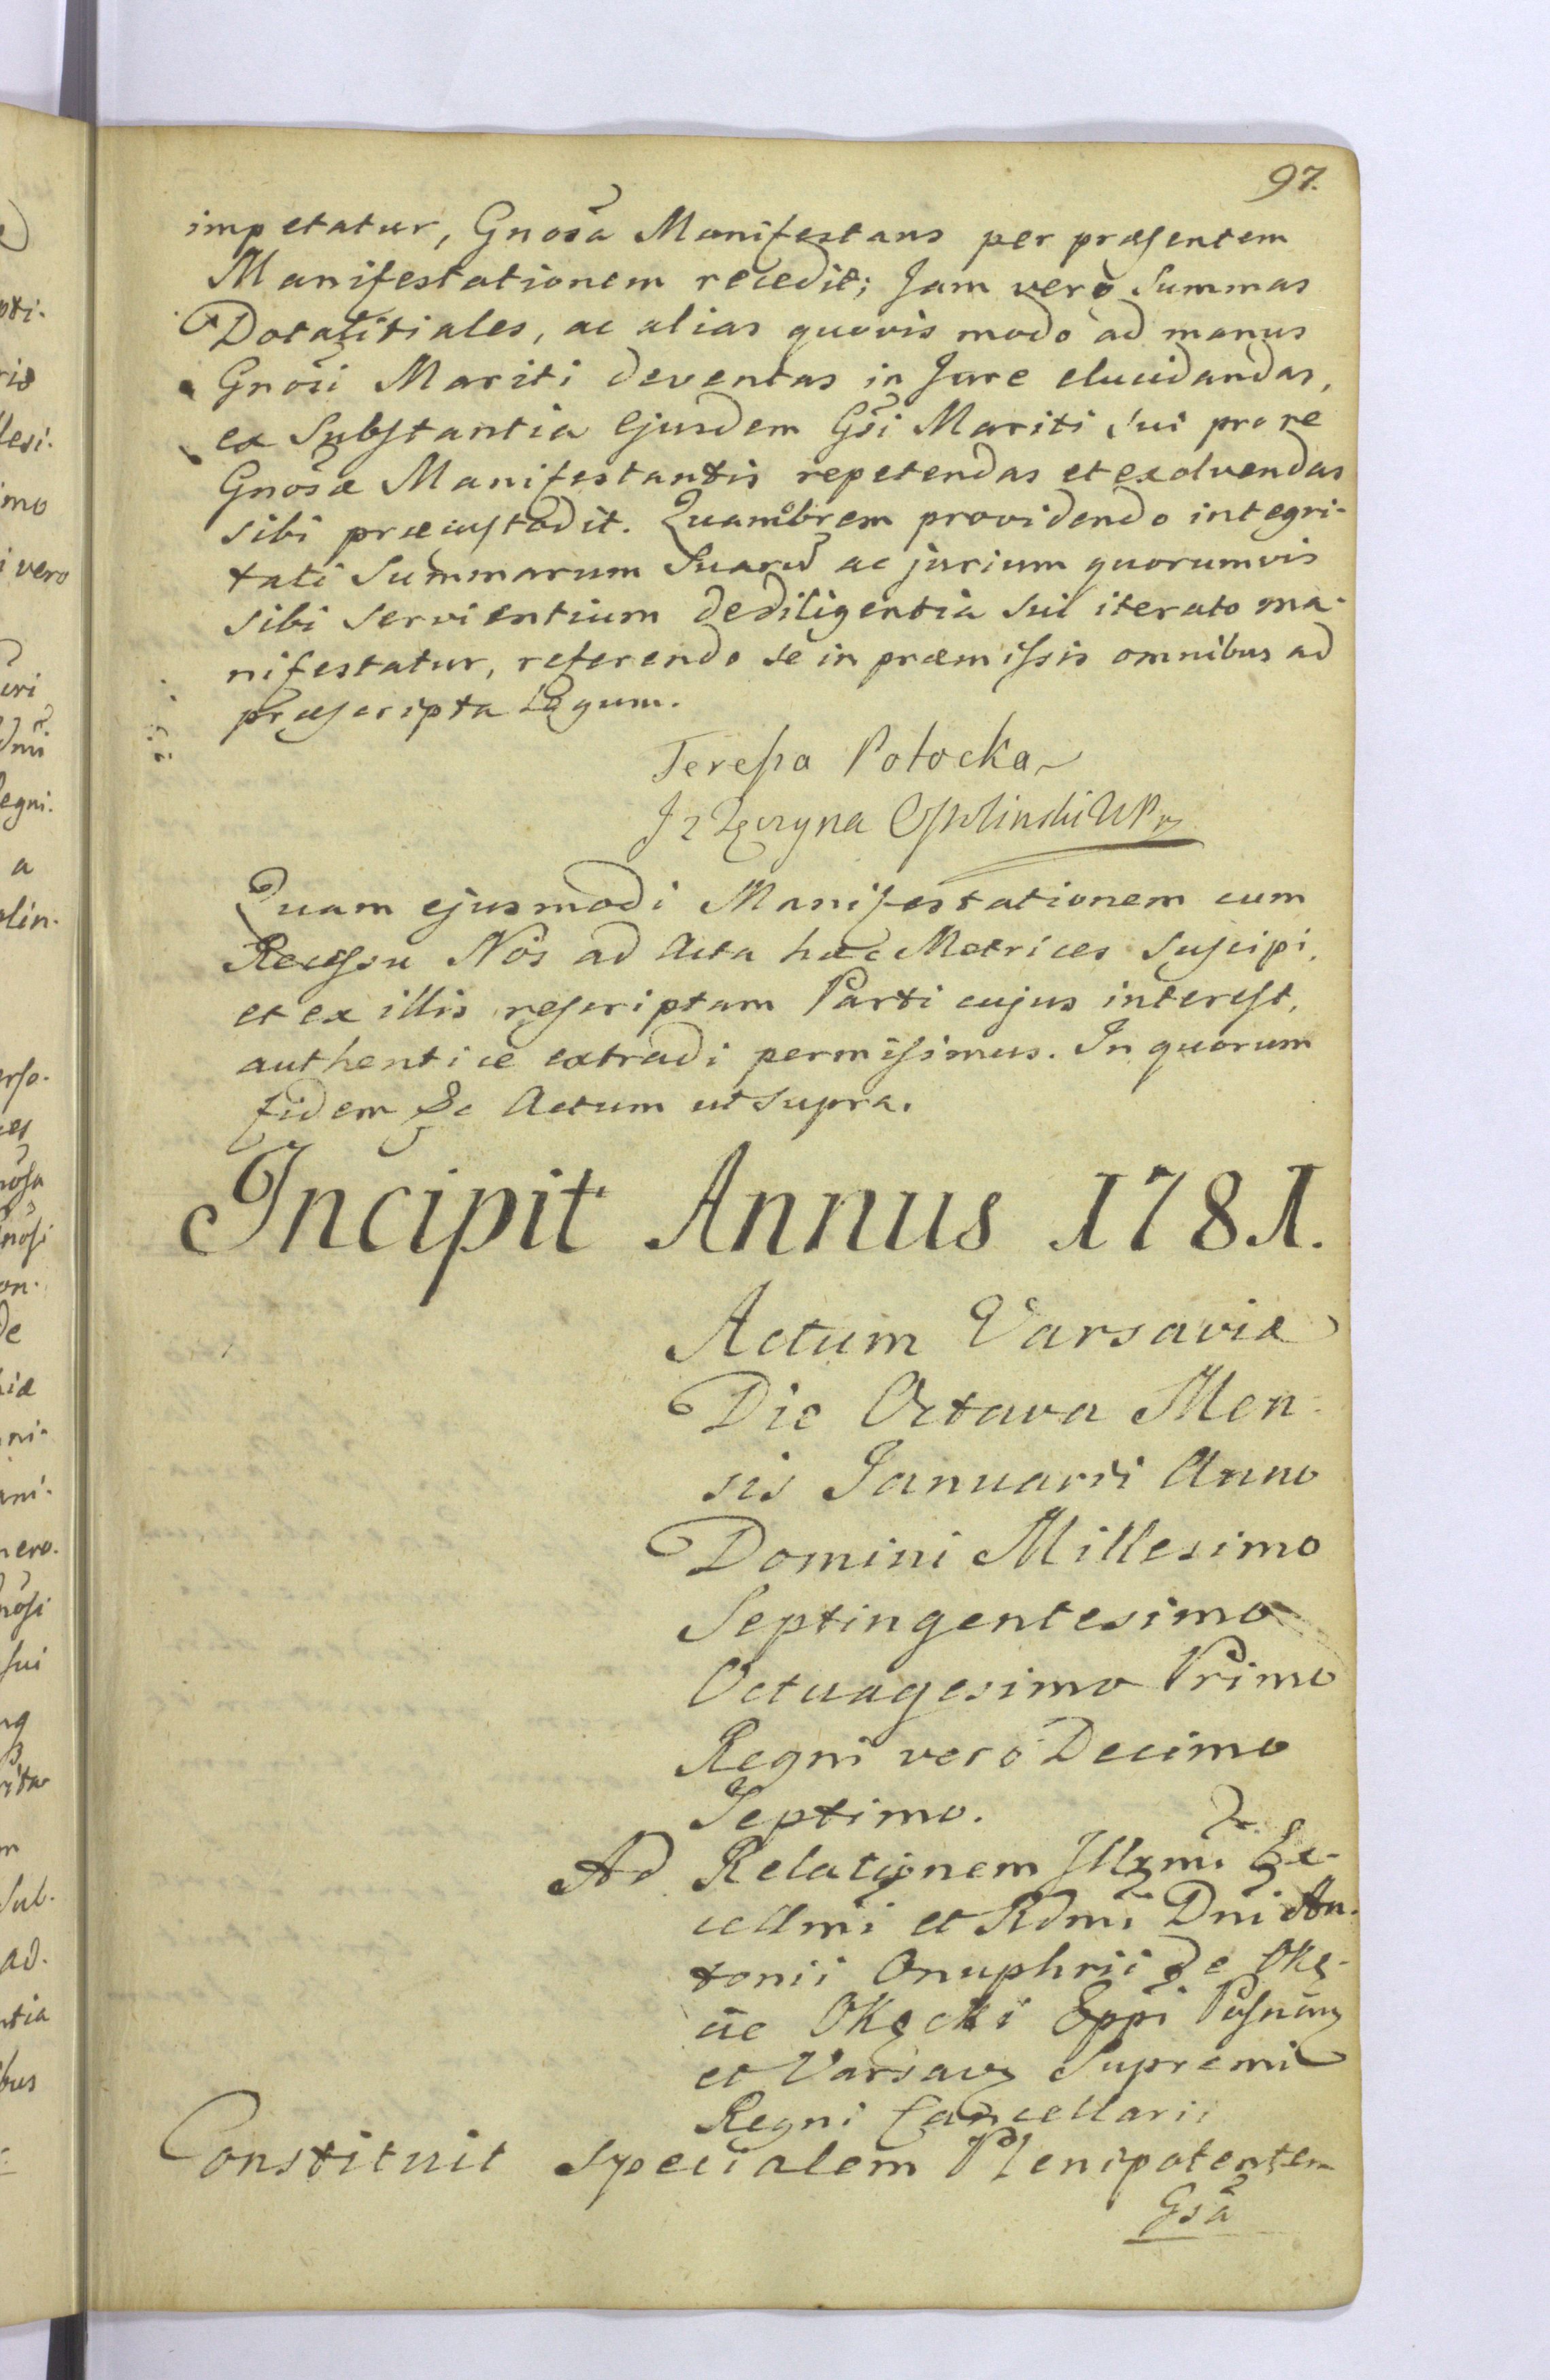 97.
impetatur, Gnosa Manifestans per præsentem
Manifestationem recedit; Jam vero Summas
Dotalitiales, ac alias quovis modo ad manus
Gnosi Mariti deventas in Jure elucidandas,
ex Substantia Ejusdem Gsi Mariti Sui pro re
Gnosæ Manifestantis repetendas et exolvendas
sibi præcustodit. Quamobrem providendo integri-
tati Summarum Suarū ac jurium quorumvis
sibi servientium de diligentia sui iterato ma-
nifestatur, referendo se in præmissis omnibus ad
præscripta Legum.
Teressa Potocka
J z Tęczyna Opolinski
Quam ejusmodi Manifestationem cum
Recessu Nos ad Acta hæc Metrices Suscipi,
et ex illis rescriptam Parti cujus interest,
authentice extradi permisimus. In quorum
fidem &c Actum ut supra.
Incipit Annus 1781.
Actum Varsaviæ
Die Octava Men-
sis Januarii Anno
Domini Millesimo
Septingentesimo
Octuagesimo Primo
Regni vero Decimo
Septimo.
Ad Relationem Illxmi Ex-
cellmi et Rdmi Dni An-
tonii Onuphrii de Okę-
cie Okęcki Eppi Posnan
et Varsav Supremi
Regni Cancellarii
Constituit specialem Plenipotentem
Gsa